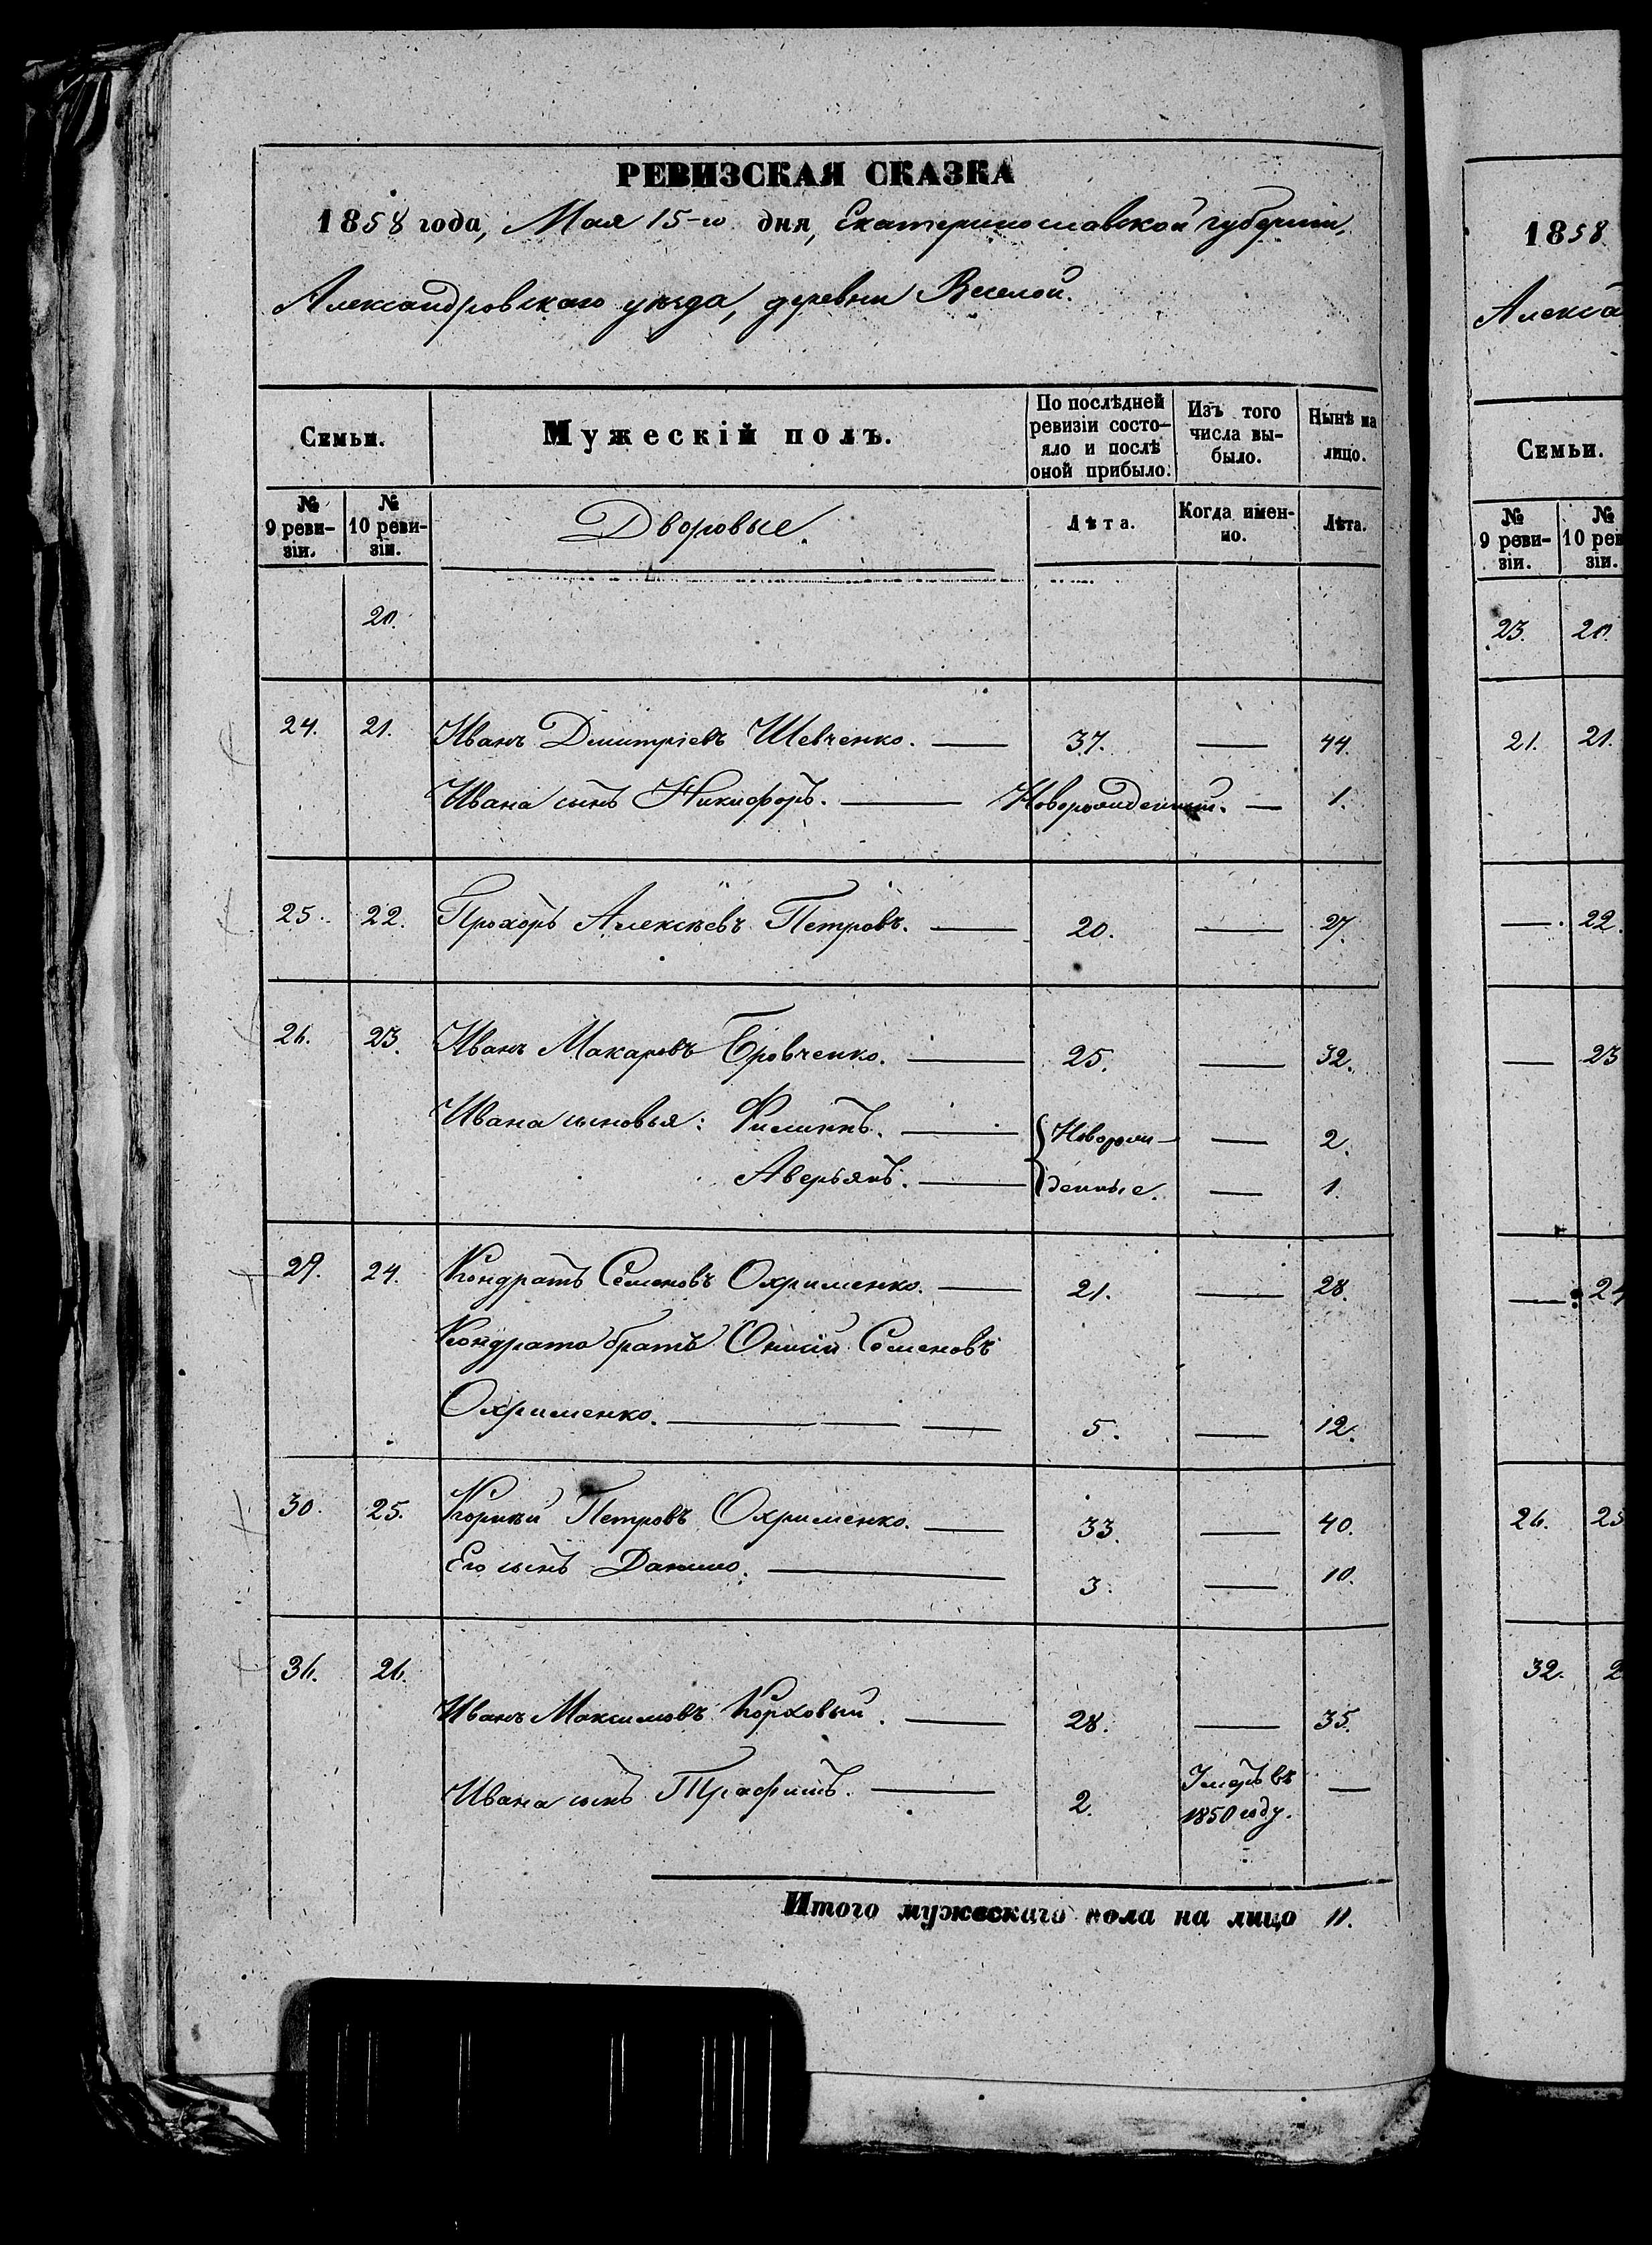 РЕВИЗСКАЯ СКАЗКА
1858 года, Мая 15-го дня, Екатеринославской губерніи,
Александровскаго уѣзда, деревни Веселой.
Семьи.
Мужескій полъ.
По послѣдней ревизіи состо-
яло и послѣ оной прибыло.
Изъ того числа вы-
было.
Нынѣ на лицо.
№ 9 реви-
зіи.
№ 10 реви-
зіи.
Дворовые.
Лѣта.
Когда имен-
но.
Лѣта.
20.
24. 21. Иванъ Дмитріевъ Шевченко. — 37. — 44.
Ивана сынъ Никифоръ. — Новорожденный. — 1.
25. 22. Прохоръ Алексѣевъ Петровъ. — 20. — 27.
26. 23. Иванъ Макаровъ Бровченко. — 25. — 32.
Ивана сыновья: Филиппъ. — Новорож- — 2.
Аверьянъ. — денные. — 1.
29. 24. Кондратъ Семеновъ Охрименко. — 21. — 28.
Кондрата братъ Онисій Семеновъ
Охрименко. — 5. — 12.
30. 25. Корнѣй Петровъ Охрименко. — 33. — 40.
Его сынъ Данило. — 3. — 10.
36. 26.
Иванъ Максимовъ Корховый. — 28. — 35.
Ивана сынъ Трафимъ. — 2. Умеръ въ —
1850 году.
Итого мужескаго пола на лицо 11.
1858
Алекса
Семьи.
№ 9 реви-
зіи.
№ 10 рев
зіи.
23. 20.
21. 21.
— 22.
— 23
— 24
26. 25
32. 2